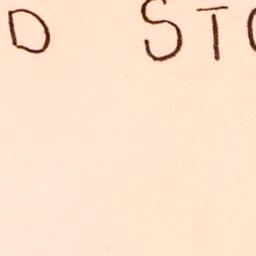 D ST